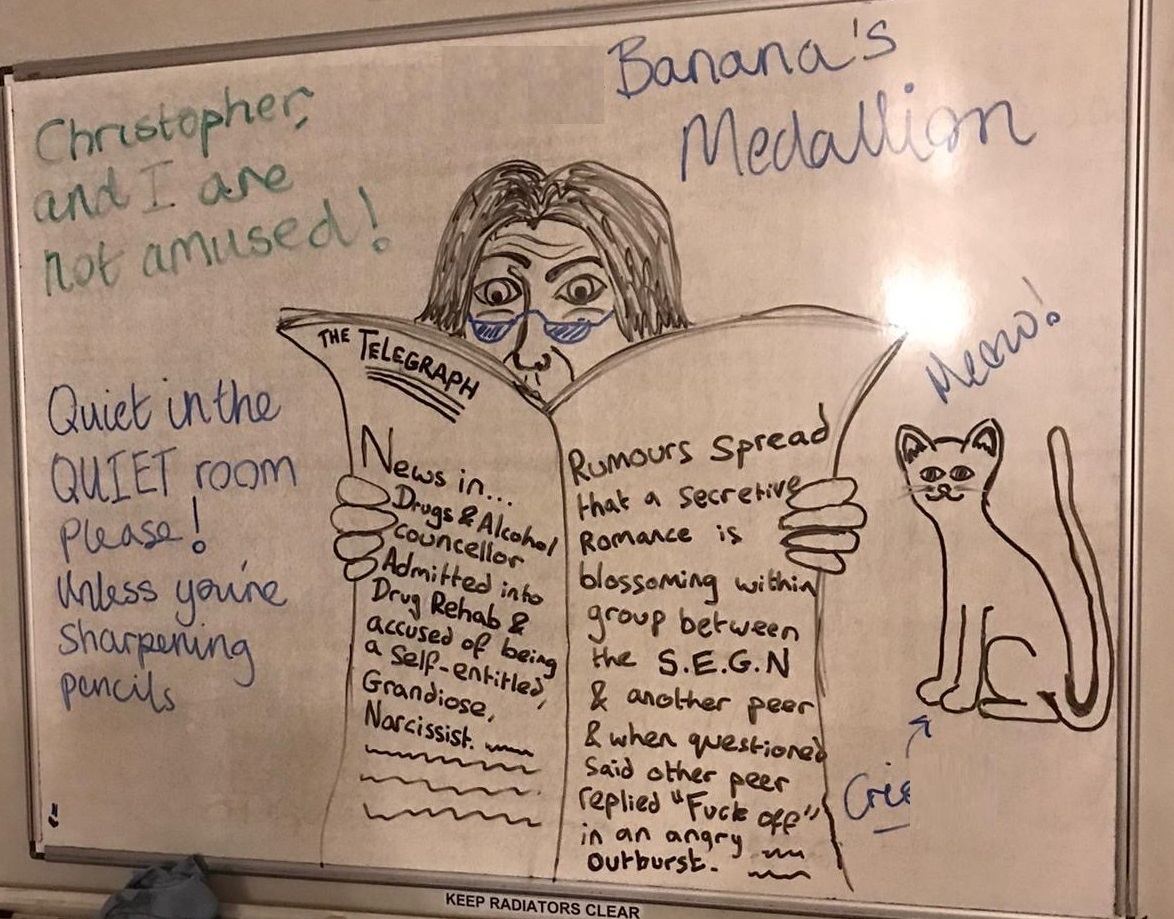 Christopher,
and I are
not amused!
Banana's
Medallion
THE TELEGRAPH
News in...
Drugs & Alcohol
councellor
Admitted into
Drug Rehab &
accused of being
a Self-entitled,
Grandiose,
Narcissist.
Rumours Spread
that a secretive
Romance is
blossoming within
group between
the S.E.G.N
& another peer
& when questioned
Said other peer
replied "Fuck off"
in an angry
outburst.
Quiet in the
QUIET room
please!
Unless you're
Sharpening
pencils
Meow!
KEEP RADIATORS CLEAR